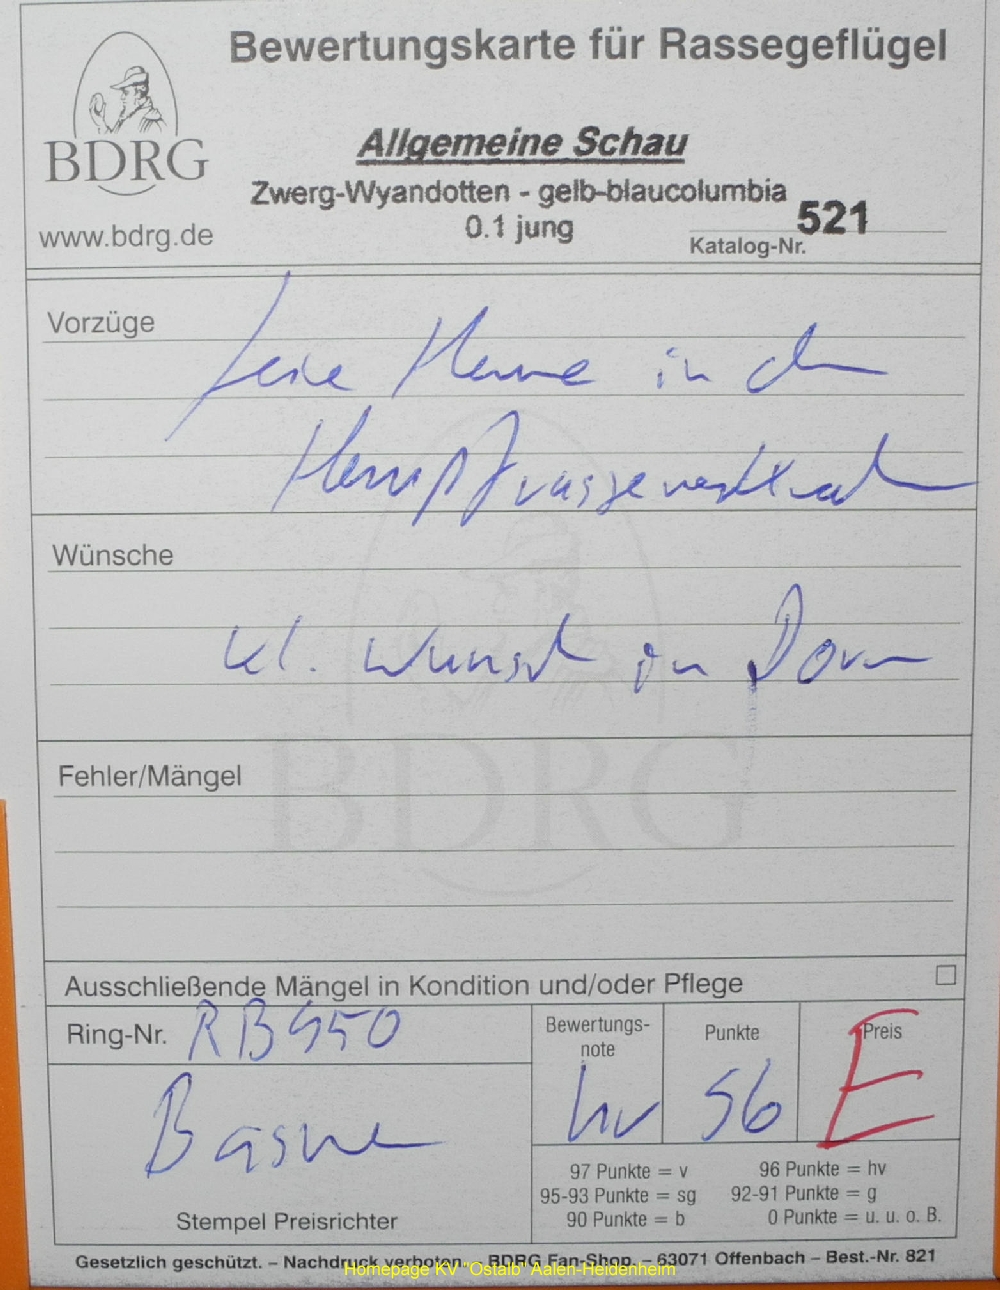 Bewertungskarte für Rassegeflügel
BDRG
www.bdrg.de
Allgemeine Schau
Zwerg-Wyandotten - gelb-blaucolumbia
0.1 jung
521
Katalog-Nr.
Vorzüge
feine Henne in d
Wünsche
kl. Wunsch in
Fehler/Mängel
BDRG
Ausschließende Mängel in Kondition und/oder Pflege
Ring-Nr. RB 950
Bewertungs-
note
hv
Punkte
96
Preis
E
Stempel Preisrichter
97 Punkte = v 96 Punkte = hv
95-93 Punkte = sg 92-91 Punkte = g
90 Punkte = b 0 Punkte = u. u. o. B.
Gesetzlich geschützt. – Nachdruck verboten – BDRG Fan-Shop – 63071 Offenbach – Best.-Nr. 821
Homepage KV "Ostalb" Aalen-Heidenheim